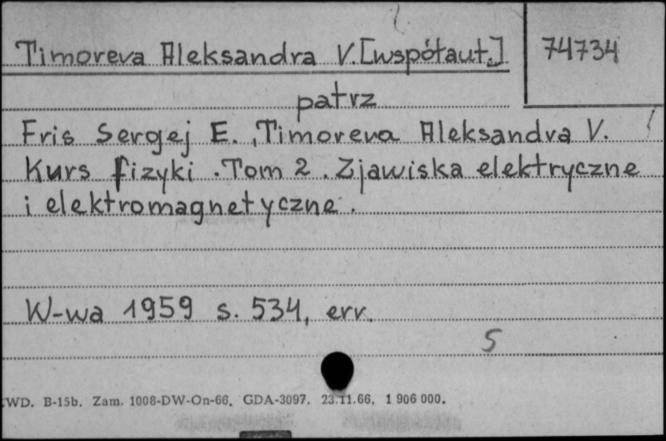 Timoreva Aleksandra V. [współaut.] 74734
patrz
Fris Sergej E., Timoreva Aleksandra V.
Kurs fizyki. Tom 2. Zjawiska elektryczne
i elektromagnetyczne.
W-wa 1959 s. 534, err.
5
WD. B-15b. Zam. 1008-DW-On-66. GDA-3097. 23.11.66. 1 906 000.